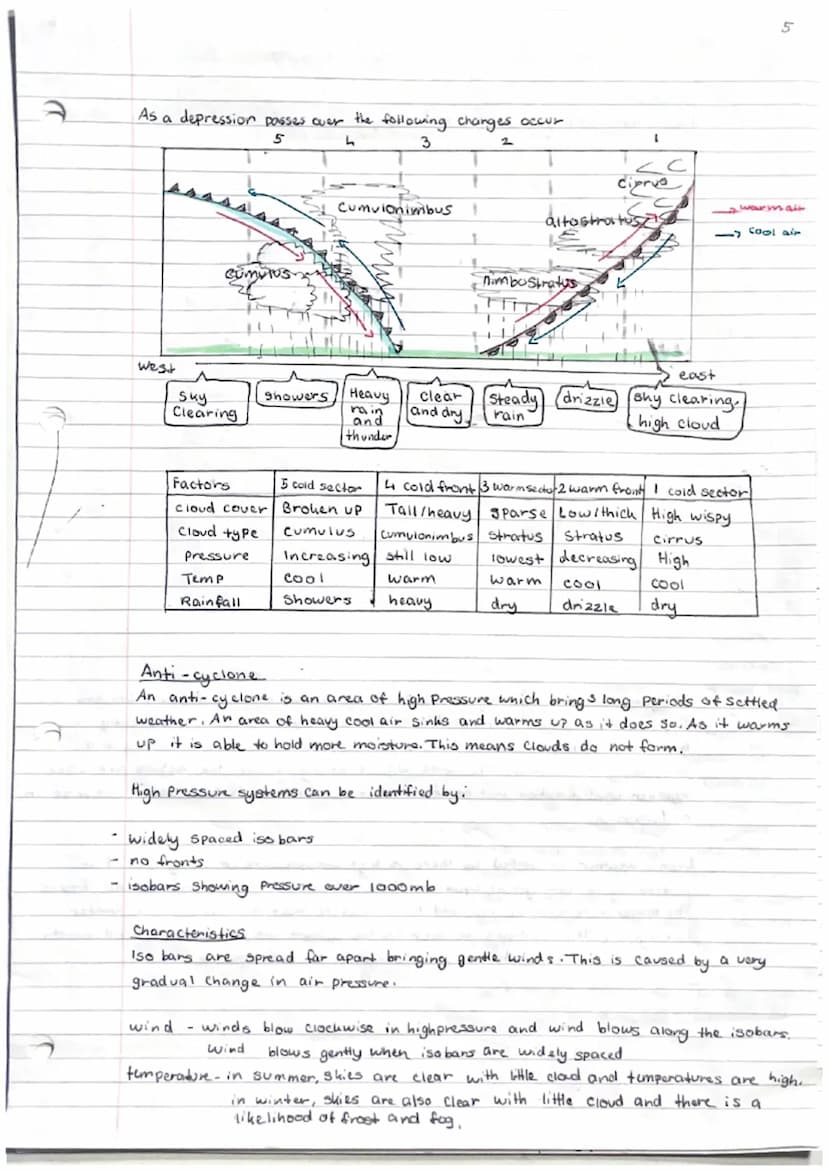 5
As a depression passes over the following changes occur
5 4 3 2 1
cirrus
cumulonimbus
warm air
altostratus
cool air
cumulus
nimbostratus
west
east
Sky Clearing
showers
Heavy rain and thunder
clear and dry
steady rain
drizzle
sky clearing, high cloud
Factors 5 cold sector 4 cold front 3 warm sector 2 warm front 1 cold sector
cloud cover Broken up Tall/heavy sparse Low/thick High wispy
cloud type cumulus cumulonimbus stratus stratus cirrus
Pressure Increasing still low lowest decreasing High
Temp cool warm warm cool cool
Rainfall Showers heavy dry drizzle dry
Anti-cyclone
An anti-cyclone is an area of high pressure which brings long periods of settled
weather. An area of heavy cool air sinks and warms up as it does so. As it warms
up it is able to hold more moisture. This means clouds do not form.
High pressure systems can be identified by:
- widely spaced isobars
- no fronts
- isobars showing pressure over 1000mb
Characteristics
Iso bars are spread far apart bringing gentle winds. This is caused by a very
gradual change in air pressure.
wind - winds blow clockwise in high pressure and wind blows along the isobars.
wind blows gently when isobars are widely spaced
temperature - in summer, skies are clear with little cloud and temperatures are high.
in winter, skies are also clear with little cloud and there is a
likelihood of frost and fog.